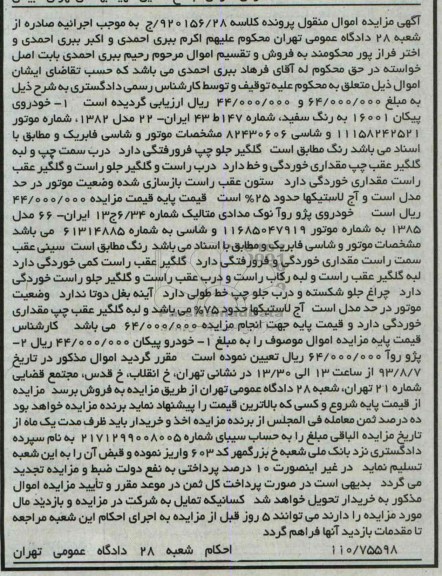 آگهی مزایده اموال منقول پرونده کلاسه ۹۲۰۱۵۶/۲۸/ج به موجب اجرائیه صادره از
شعبه ۲۸ دادگاه عمومی تهران محکوم علیهم اکرم ببری احمدی و اکبر ببری احمدی و
اختر فراز پور محکومند به فروش و تقسیم اموال مرحوم رحیم ببری احمدی بابت اصل
خواسته در حق محکوم له آقای فرهاد ببری احمدی می باشد که حسب تقاضای ایشان
اموال ذیل متعلق به محکوم علیه توقیف و توسط کارشناس رسمی دادگستری به شرح ذیل
به مبلغ ۶۴/۰۰۰/۰۰۰ و ۴۴/۰۰۰/۰۰۰ ریال ارزیابی گردیده است ۱- خودروی
پیکان ۱۶۰۰۱ به رنگ سفید، شماره ۱۴۷ط ۴۳ ایران- ۲۲ مدل ۱۳۸۲، شماره موتور
۱۱۱۵۸۲۴۲۵۲۱ و شاسی ۸۲۴۳۰۶۰۶ مشخصات موتور و شاسی فابریک و مطابق با
اسناد می باشد رنگ مطابق است گلگیر جلو چپ فرورفتگی دارد درب سمت چپ و لبه
گلگیر عقب چپ مقداری خوردگی و خط دارد درب راست و گلگیر جلو راست و گلگیر عقب
راست مقداری خوردگی دارد ستون عقب راست بازسازی شده وضعیت موتور در حد
مدل است و آج لاستیکها حدود ۲۵% است قیمت پایه قیمت مزایده ۴۴/۰۰۰/۰۰۰
ریال است خودروی پژو روآ نوک مدادی متالیک شماره ۶/۳۴ج۱۳ ایران- ۶۶ مدل
۱۳۸۵ به شماره موتور ۱۱۶۸۵۰۴۷۹۱۹ و شاسی به شماره ۶۱۳۱۴۸۸۵ می باشد
مشخصات موتور و شاسی فابریک و مطابق با اسناد می باشد رنگ مطابق است سینی عقب
سمت راست مقداری خوردگی و فرورفتگی دارد گلگیر عقب راست کمی خوردگی دارد
لبه گلگیر عقب راست و لبه رکاب راست و درب عقب راست و گلگیر جلو راست خوردگی
دارد چراغ جلو شکسته و درب جلو چپ خط طولی دارد آینه بغل دوتا ندارد وضعیت
موتور در حد مدل است آج لاستیکها حدود ۷۵% می باشد و لبه گلگیر عقب چپ مقداری
خوردگی دارد و قیمت پایه جهت انجام مزایده ۶۴/۰۰۰/۰۰۰ می باشد کارشناس
قیمت پایه مزایده اموال موصوف را به مبلغ ۱- خودرو پیکان ۴۴/۰۰۰/۰۰۰ ریال ۲-
پژو روآ ۶۴/۰۰۰/۰۰۰ ریال تعیین نموده است مقرر گردید اموال مذکور در تاریخ
۹۳/۸/۷ از ساعت ۱۳ الی ۱۳/۳۰ در نشانی تهران، خ انقلاب، خ قدس، مجتمع قضایی
شماره ۲۱ تهران، شعبه ۲۸ دادگاه عمومی تهران از طریق مزایده به فروش برسد مزایده
از قیمت پایه شروع و کسی که بالاترین قیمت را پیشنهاد نماید برنده مزایده خواهد بود
ده درصد ثمن معامله فی المجلس از برنده مزایده اخذ و خریدار باید ظرف مدت یک ماه از
تاریخ مزایده الباقی مبلغ را به حساب سیبای شماره ۲۱۷۱۲۹۹۰۰۸۰۰۵ به نام سپرده
دادگستری نزد بانک ملی شعبه خ بزرگمهر کد ۶۰۳ واریز نموده و قبض آن را به این شعبه
تسلیم نماید در غیر اینصورت ۱۰ درصد پرداختی به نفع دولت ضبط و مزایده تجدید
می گردد بدیهی است در صورت پرداخت کل ثمن در موعد مقرر و تأیید مزایده اموال
مذکور به خریدار تحویل خواهد شد کسانیکه تمایل به شرکت در مزایده و بازدید مال
مورد مزایده را دارند می توانند ۵ روز قبل از مزایده به اجرای احکام این شعبه مراجعه
تا مقدمات بازدید آنها فراهم گردد
۱۱۰/۷۵۵۹۸ احکام شعبه ۲۸ دادگاه عمومی تهران